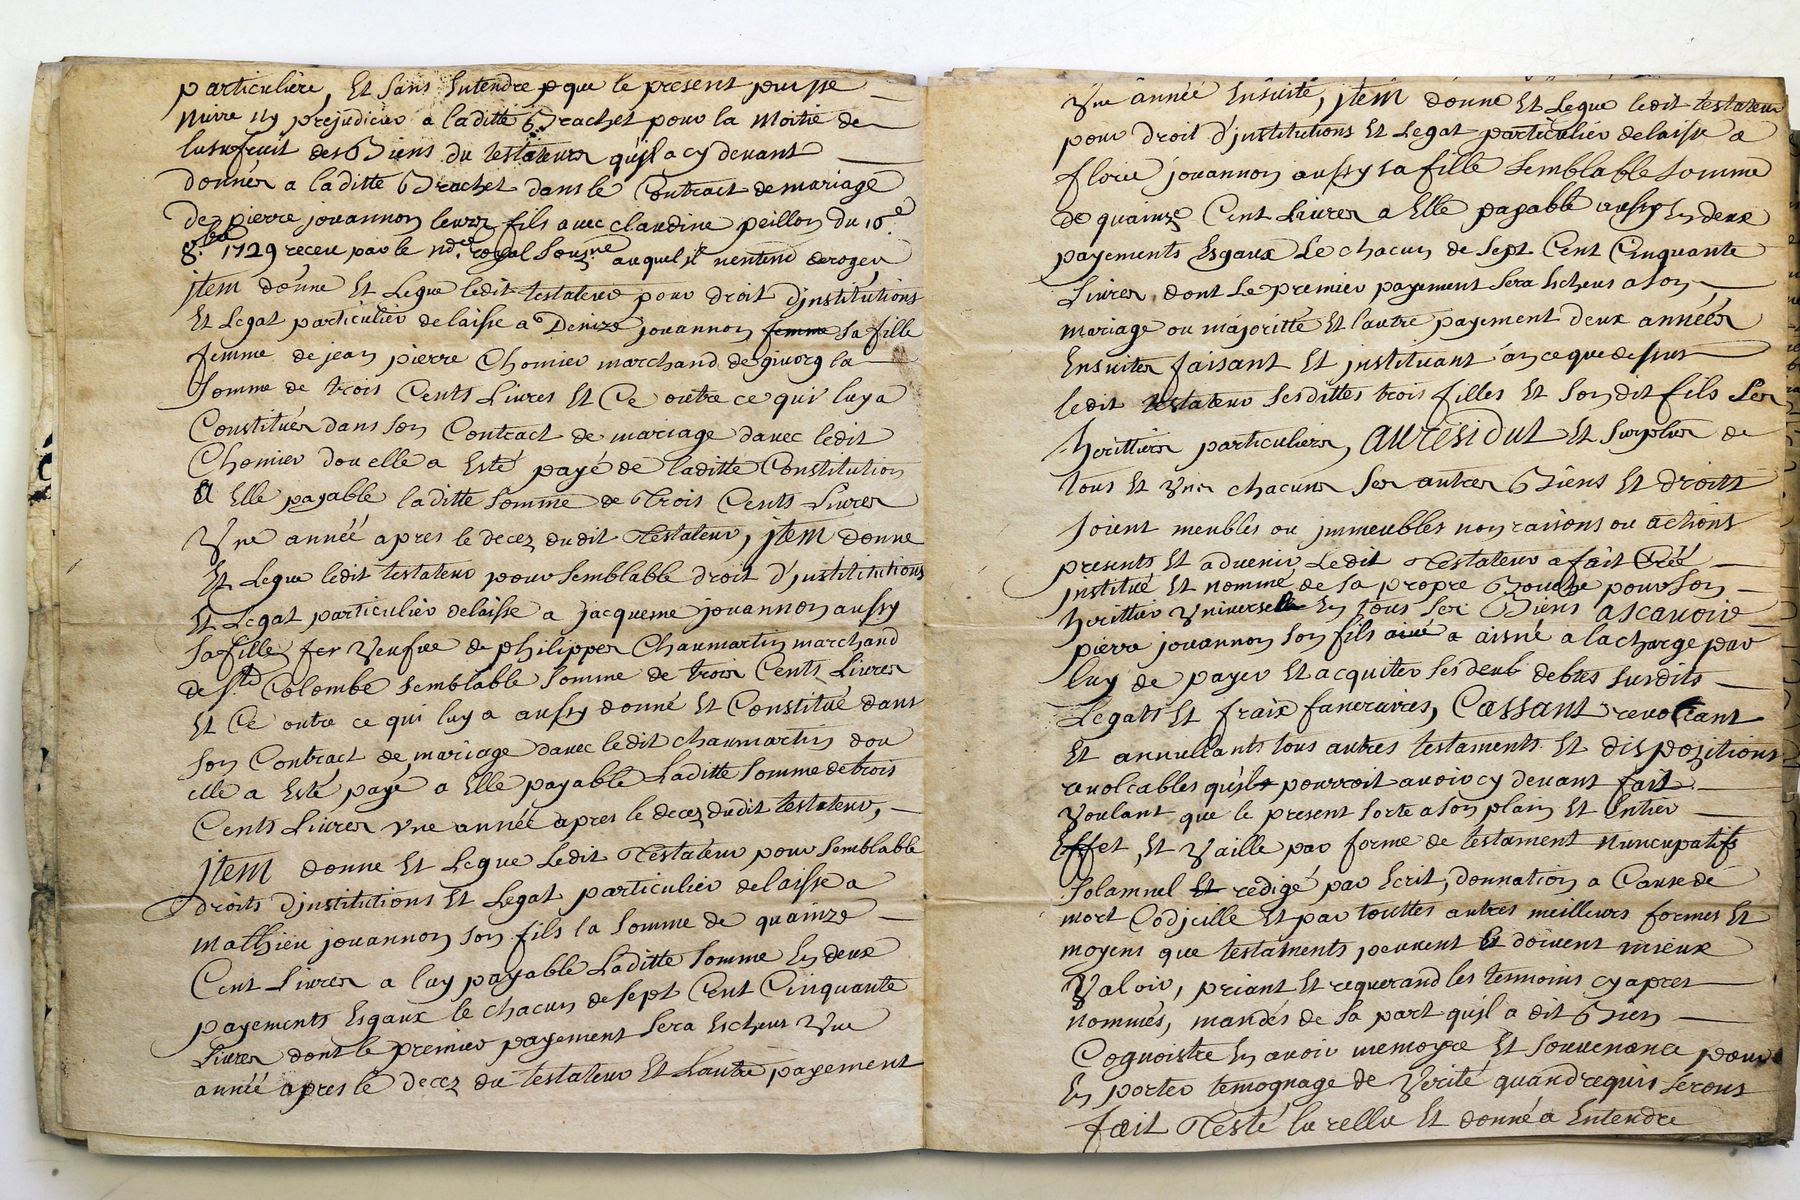 particulière, Et sans Entendre que le present puisse
nuire ny prejudicier a laditte Brachet pour la moitié de
lusufruit des Biens du testateur qu'il a cy devant
donnés a laditte Brachet dans le Contract de mariage
de pierre jouannon leur fils avec claudine peillon du 16e
8.bre 1729 receu par le nore. royal sousne auquel il n'entend deroger
jtem donne Et Legue ledit testateur pour droit d'jnstitutions
Et Legat particulier delaisse a Denize jouannon femme sa fille
femme de jean pierre Chomier marchand de givorg la
somme de trois Cents Livres Et Ce outre ce qui luy a
Constitués dans son Contract de mariage davec ledit
Chomier dou elle a Esté payé de laditte Constitution
A Elle payable laditte somme de Trois Cents Livres
Vne année apres le decez dudit Testateur, jtem donne
Et Legue ledit testateur pour semblable droit d'jnstititutions
Et Legat particulier delaisse a jacqueme jouannon aussy
sa fille, veufve de philippes Chaumartin marchand
de ste Colombe semblable somme de trois Cents Livres
Et Ce outre ce qui luy a aussy donné Et Constitué dans
son Contract de mariage davec ledit chaumartin dou
elle a Esté payé a Elle payable Laditte somme de trois
Cents Livres vne année apres le decez dudit testateur,
jtem donne Et Legue Ledit Testateur pour semblable
droits d'jnstitutions Et Legat particulier delaisse a
mathieu jouannon son fils la somme de quainze
Cent Livres a luy payable Laditte somme En deux
payements Esgaux le chacun de sept Cent Cinquante
Livres dont le premier payement sera Escheus Vne
année apres le decez du testateur Et Lautre payement
Vne année Ensuite, jtem donne Et Legue ledit testateur
pour droit d'jnstitutions Et Legat particulier delaisse a
florie jouannon aussy sa fille semblable somme
de quainze Cent Livres a Elle payable aussy En deux
payements Esgaux Le chacun de sept Cent Cinquante
Livres, dont Le premier payement sera Echeus a son
mariage ou majoritté Et l'autre payement deux années
Ensuites faisant Et jnstituant en ce que dessus
ledit testateur sesdittes trois filles Et Son dit fils Ses
heritiers particuliers, AU RESIDUT Et surplus de
tous Et Vns chacuns ses autres Biens Et droits
soient meubles ou jmmeubles nons raisons ou actions
presents Et advenir Ledit Testateur a fait Créé
jnstitué Et nommé de sa propre Bouche pour son
heritier Vniverselle En tous ses Biens ascavoir
pierre jouannon son fils aisné a la charge par
luy de payer Et acquiter ses debtes susdits
Legats Et fraix funeraires, Cassant revocant
Et annullants tous autres testaments Et dispozitions
revolcables qu'il pourroit avoir cy devant fait
Voulant que le present sorte a son plain Et Entier
Effet, Et Vaille par forme de testament nuncupatifs
solamnel Et redigé par Ecrit, donnation a Cause de
mort Codjcille Et par touttes autres meilleurs formes Et
moyens que testaments peuvent Et doivent mieux
Valoir, priant Et requerand les temoins cy apres
nommés, mandés de sa part qu'jl a dit Bien
Cognoistre En avoir memoyre Et souvenance pour
En porter temognage de Verité quand requis seront
fait Testé lu rellu Et donné a Entendre